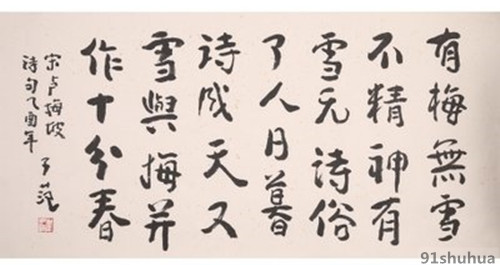 有梅無雪
不精神有
雪无诗俗
了人日暮
诗成天又
雪與梅并
作十分春
宋卢梅坡
诗句乙酉年
子范
91shuhua